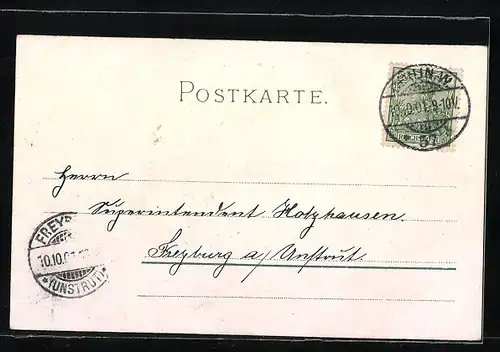 POSTKARTE.
BERLIN.W.
9-10V.
Herrn
Superintendent Holzhausen
Freyburg a/ Unstrut.
FREYB
10.10.0
*(UNSTRUT)*